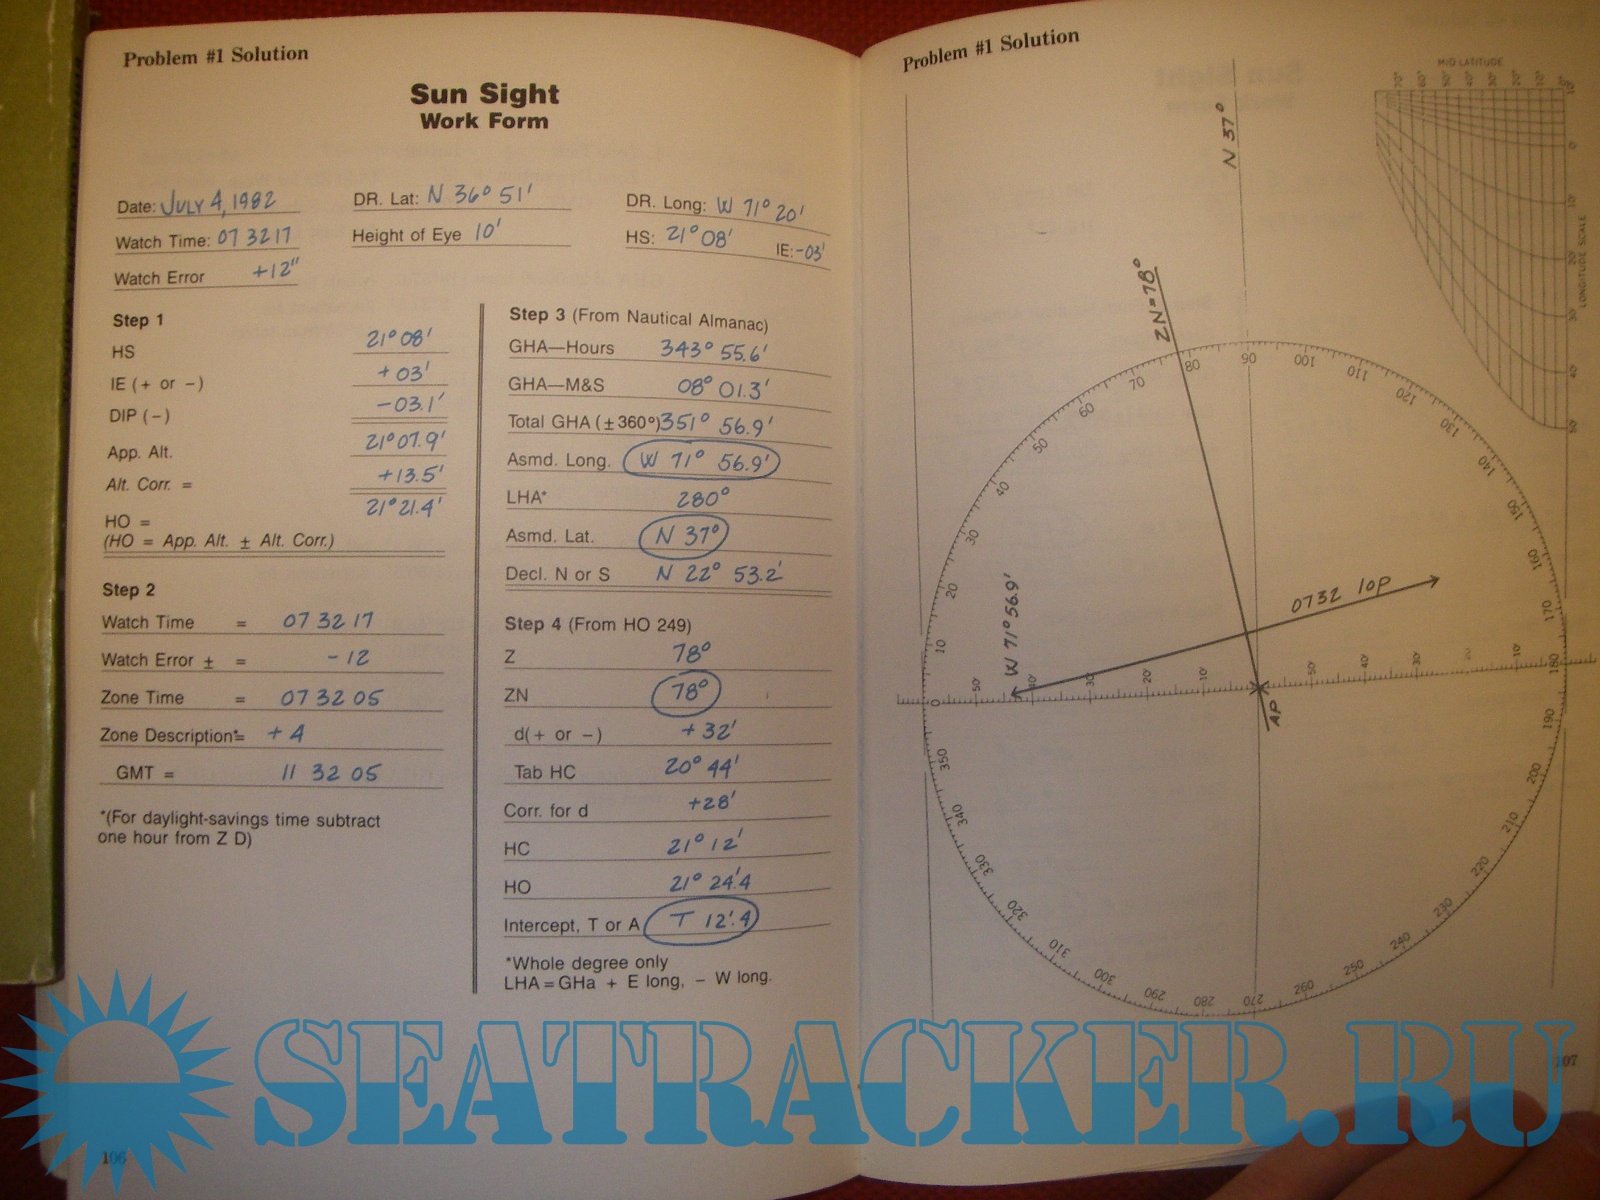 Problem #1 Solution
Sun Sight
Work Form
Date: JULY 4, 1982
DR. Lat: N 36° 51'
DR. Long: W 71° 20'
Watch Time: 07 32 17
Height of Eye 10'
HS: 21° 08'
IE: -03'
Watch Error +12"
Step 1
HS 21° 08'
IE (+ or −) + 03'
DIP (−) -03.1'
App. Alt. 21° 07.9'
Alt. Corr. = +13.5'
HO = 21° 21.4'
(HO = App. Alt. ± Alt. Corr.)
Step 2
Watch Time = 07 32 17
Watch Error ± = - 12
Zone Time = 07 32 05
Zone Description*= + 4
GMT = 11 32 05
*(For daylight-savings time subtract
one hour from Z D)
Step 3 (From Nautical Almanac)
GHA—Hours 343° 55.6'
GHA—M&S 08° 01.3'
Total GHA (±360°) 351° 56.9'
Asmd. Long. W 71° 56.9'
LHA* 280°
Asmd. Lat. N 37°
Decl. N or S N 22° 53.2'
Step 4 (From HO 249)
Z 78°
ZN 78°
d(+ or −) + 32'
Tab HC 20° 44'
Corr. for d +28'
HC 21° 12'
HO 21° 24'.4
Intercept, T or A T 12'.4
*Whole degree only
LHA=GHa + E long, − W long.
106
Problem #1 Solution
N 37°
MID LATITUDE
70° 60° 50° 40° 30° 20° 10° 0°
LONGITUDE SCALE
0' 10' 20' 30' 40' 50'
ZN=78°
0 10 20 30 40 50 60 70 80 90 100 110 120 130 140 150 160 170 180 190 200 210 220 230 240 250 260 270 280 290 300 310 320 330 340 350
W 71° 56.9'
0732 LOP
50' 40' 30' 20' 10'
50' 40' 30' 10'
AP
107
SEATRACKER.RU